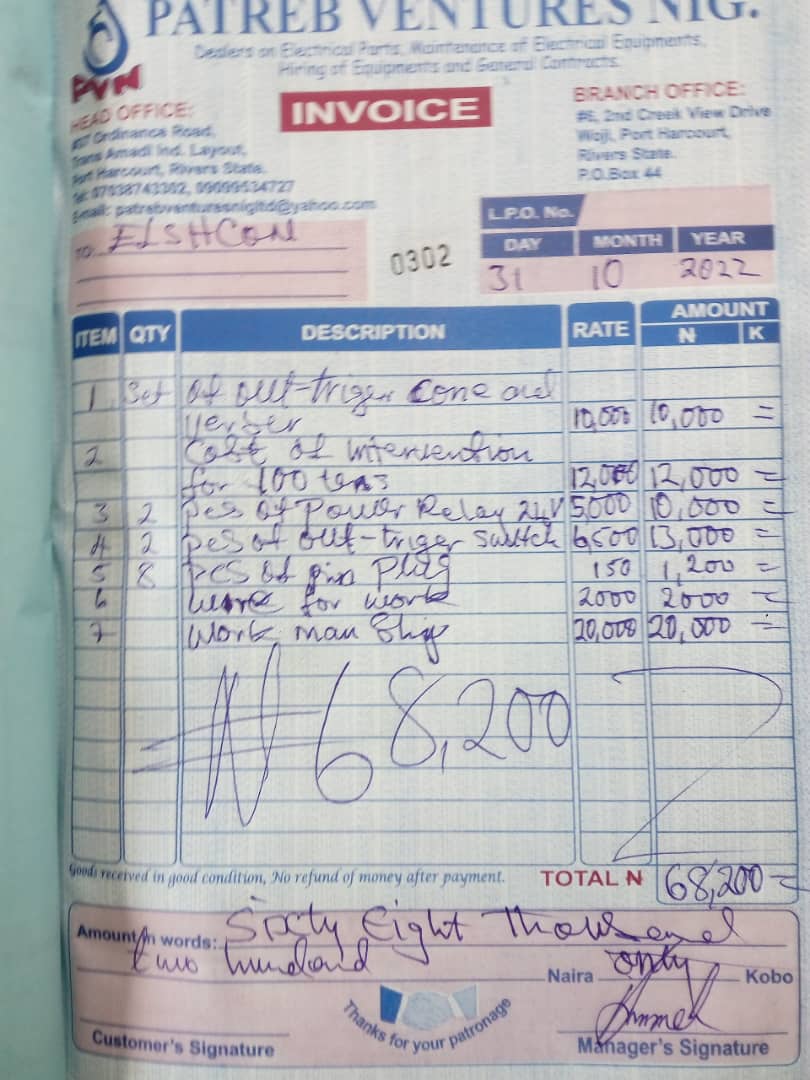 PATREB VENTURES NIG.
Dealers on Electrical Parts, Maintenance of Electrical Equipments,
Hiring of Equipments and General Contracts.
PVN
INVOICE
HEAD OFFICE:
Ordinance Road,
Trans Amadi Ind. Layout,
Port Harcourt, Rivers State.
BRANCH OFFICE:
#5, 2nd Creek View Drive
Woji, Port Harcourt,
Rivers State.
P.O.Box 44
TO: ELSHCON
0302
L.P.O. No.
DAY MONTH YEAR
31 10 2022
ITEM QTY DESCRIPTION RATE AMOUNT
N K
1 Set of out-triger cone and
10,000 10,000 =
2 Cost of intervention
for 100 tons 12,000 12,000 =
3 2 pcs of Power Relay 24V 5,000 10,000 =
4 2 pcs of out-triger switch 6,500 13,000 =
5 8 pcs of pin Plug 150 1,200 =
6 for work 2000 2000 =
7 Work man Ship 20,000 20,000 =
₦68,200
Goods received in good condition, No refund of money after payment. TOTAL N 68,200 =
Amount in words: Sixty Eight Thousand
two hundard Naira only Kobo
Thanks for your patronage
Customer's Signature Manager's Signature